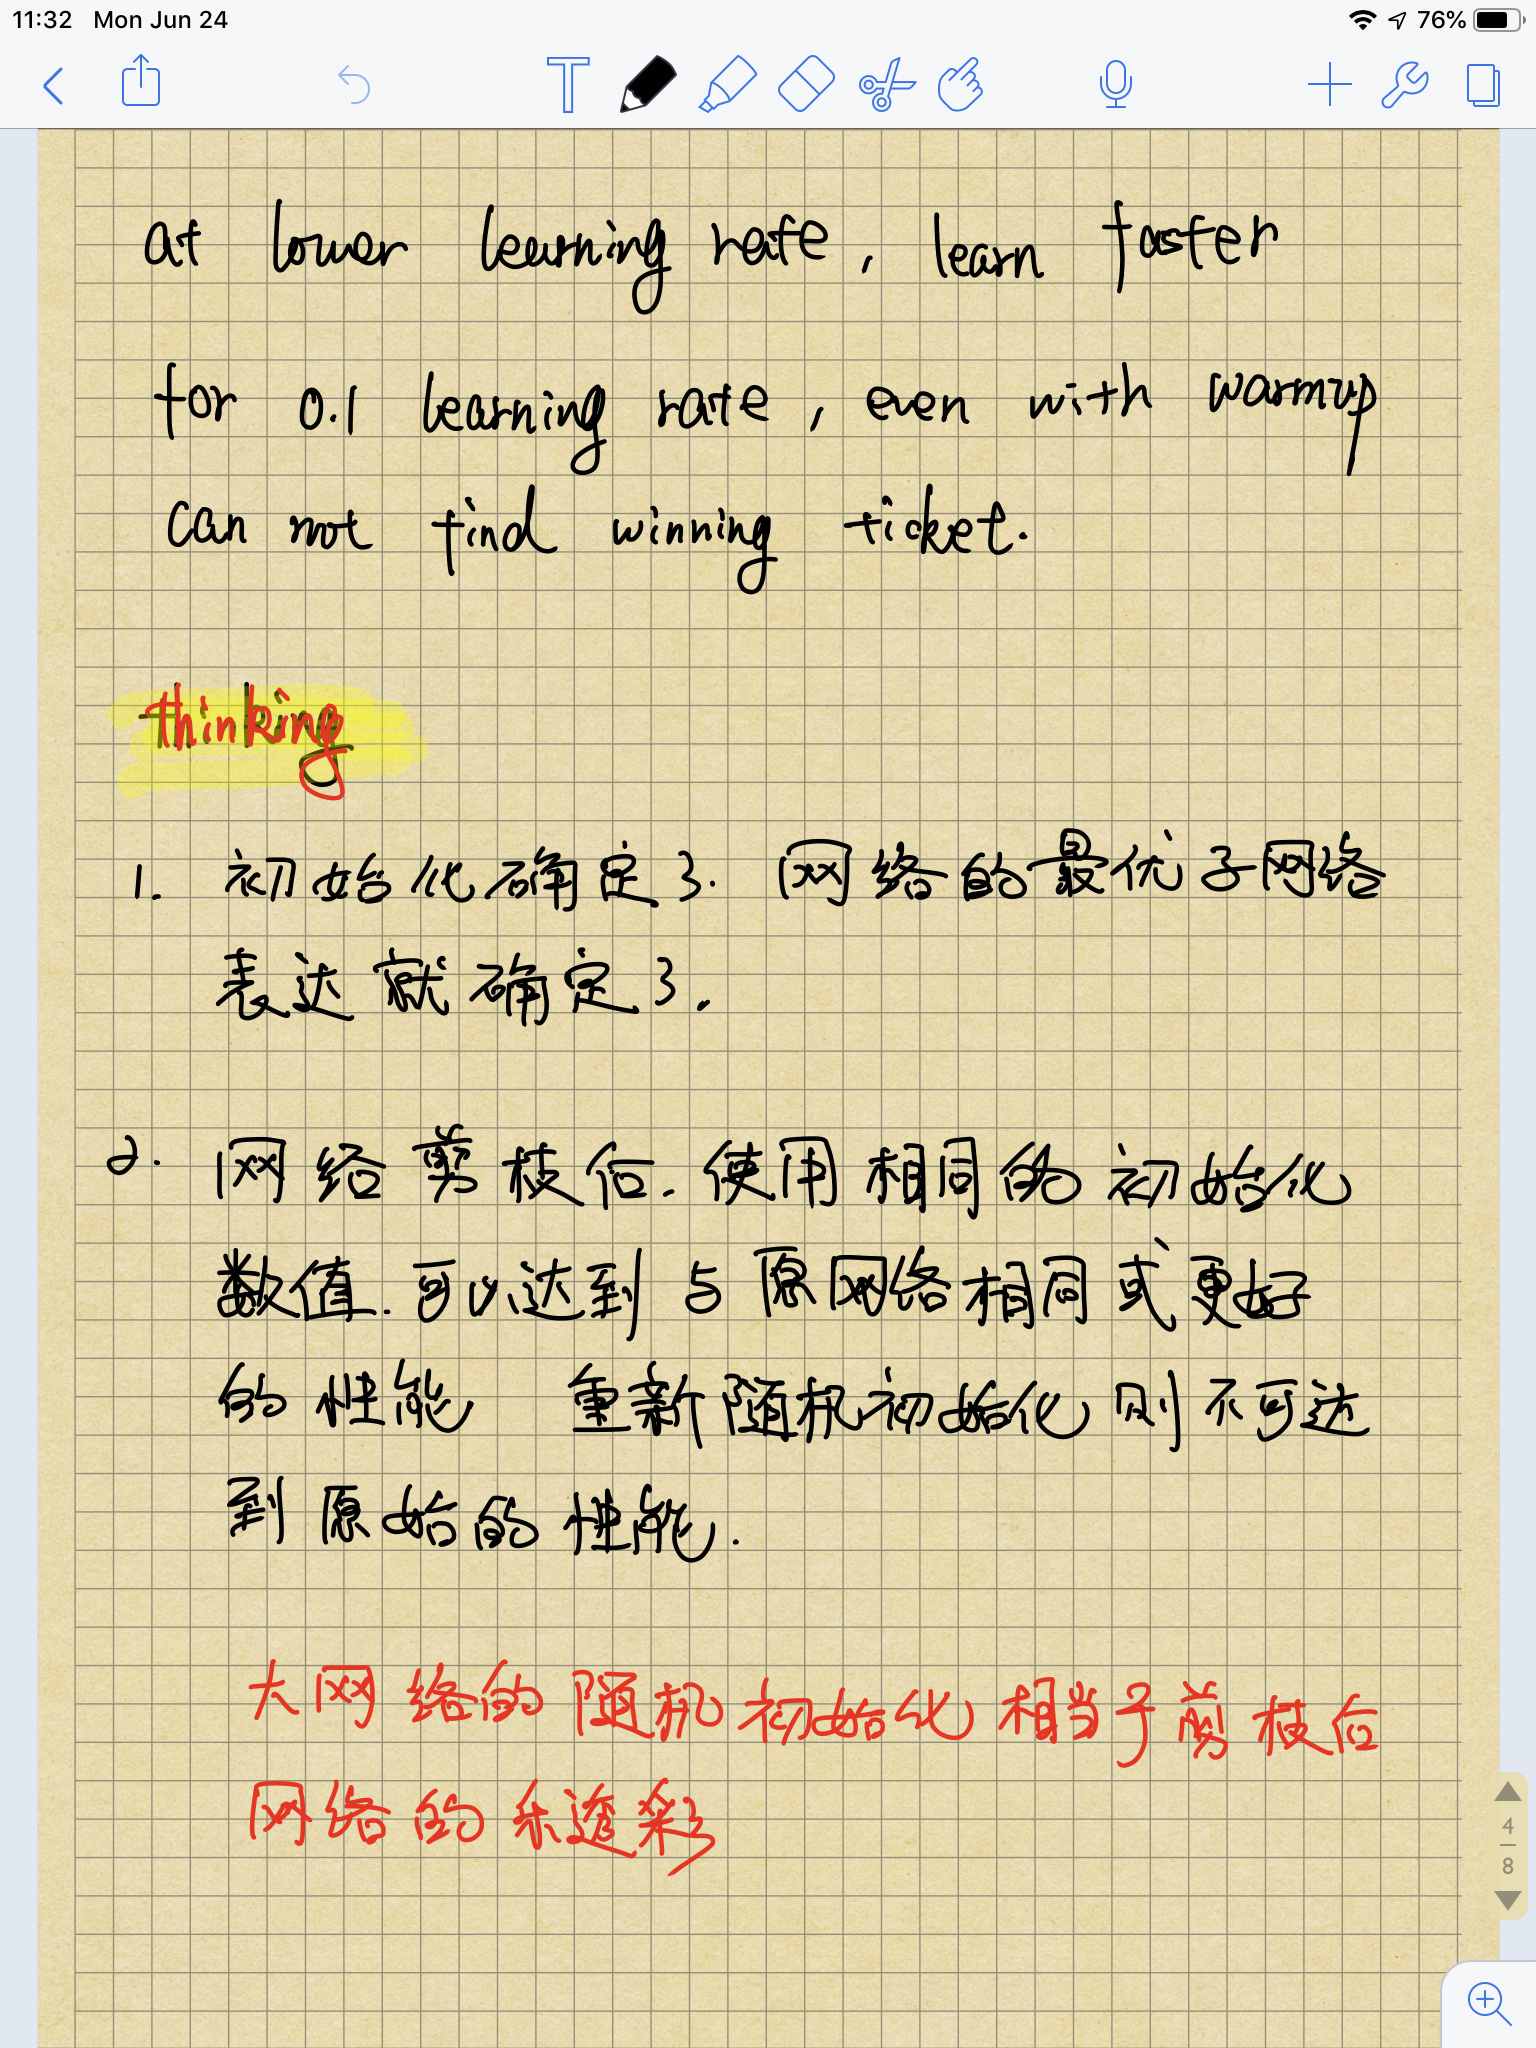 11:32 Mon Jun 24
76%
at lower learning rate, learn faster
for 0.1 learning rate, even with warmup
can not find winning ticket.
thinking
1. 初始化确定了. 网络的最优子网络
表达就确定了.
2. 网络剪枝后. 使用相同的初始化
数值. 可以达到与原网络相同或更好
的性能 重新随机初始化则不可达
到原始的性能.
大网络的随机初始化相当于剪枝后
网络的乐透彩
4
8